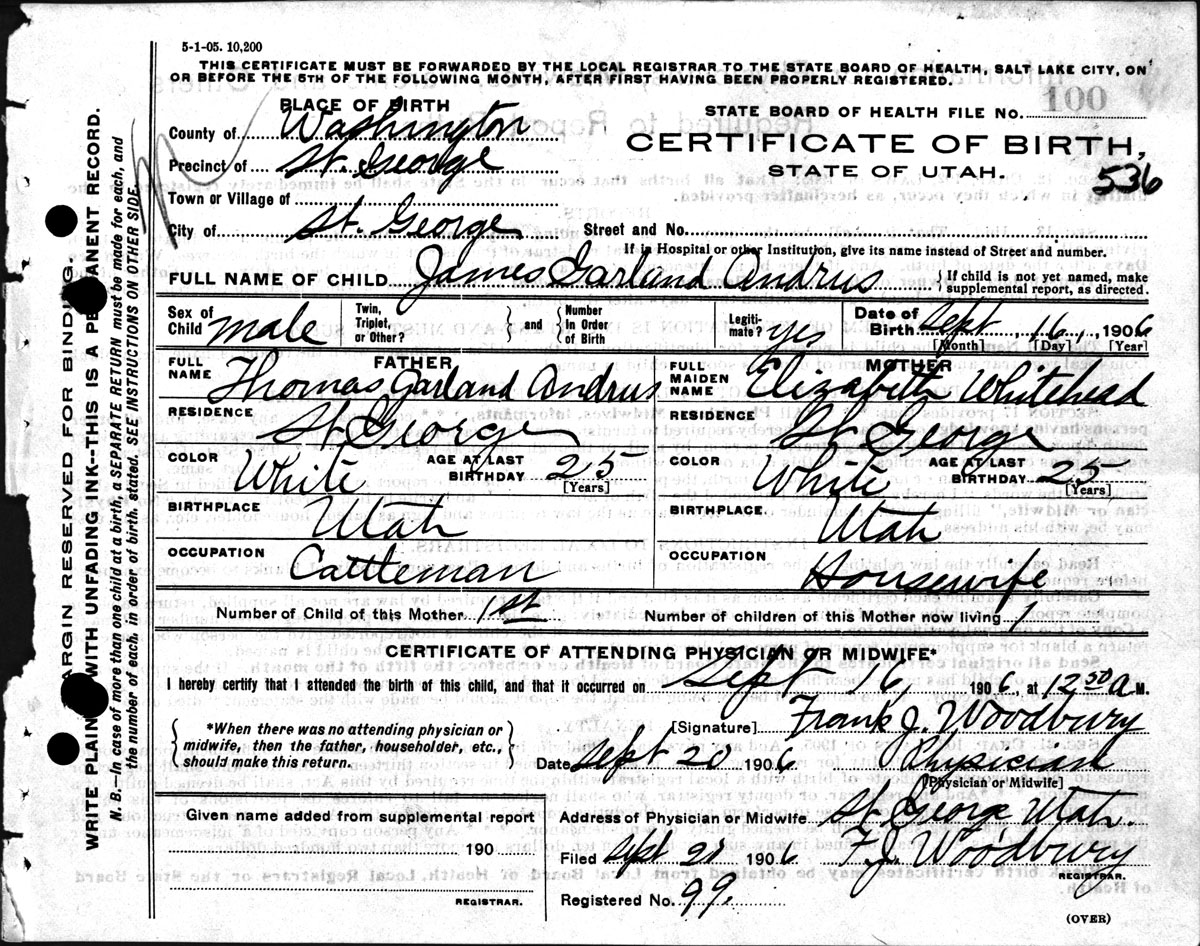 5-1-05. 10,200
THIS CERTIFICATE MUST BE FORWARDED BY THE LOCAL REGISTRAR TO THE STATE BOARD OF HEALTH, SALT LAKE CITY, ON
OR BEFORE THE 5TH OF THE FOLLOWING MONTH, AFTER FIRST HAVING BEEN PROPERLY REGISTERED.
PLACE OF BIRTH
County of Washington
Precinct of St. George
Town or Village of
City of St. George
STATE BOARD OF HEALTH FILE NO. 100
CERTIFICATE OF BIRTH,
STATE OF UTAH.
536
Street and No.
If in Hospital or other Institution, give its name instead of Street and number.
FULL NAME OF CHILD James Garland Andrus
{If child is not yet named, make
supplemental report, as directed.
Sex of Child male
Twin, Triplet, or Other?
and
Number In Order of Birth
Legiti-mate? yes
Date of Birth Sept 16, 1906
[Month] [Day] [Year]
FATHER
FULL NAME Thomas Garland Andrus
RESIDENCE St George
COLOR White AGE AT LAST BIRTHDAY 25
[Years]
BIRTHPLACE Utah
OCCUPATION Cattleman
MOTHER
FULL MAIDEN NAME Elizabeth Whitehead
RESIDENCE St. George
COLOR White AGE AT LAST BIRTHDAY 25
[Years]
BIRTHPLACE Utah
OCCUPATION Housewife
Number of Child of this Mother 1st
Number of children of this Mother now living 1
CERTIFICATE OF ATTENDING PHYSICIAN OR MIDWIFE*
I hereby certify that I attended the birth of this child, and that it occurred on Sept 16, 1906, at 12 50 A M.
*When there was no attending physician or
midwife, then the father, householder, etc.,
should make this return.
[Signature] Frank J. Woodbury
Date Sept 20 1906 Physician
[Physician or Midwife]
Given name added from supplemental report
190
REGISTRAR.
Address of Physician or Midwife St George Utah.
Filed Sept 21 1906 F. J. Woodbury
REGISTRAR.
Registered No. 99.
(OVER)
MARGIN RESERVED FOR BINDING.
WRITE PLAINLY WITH UNFADING INK--THIS IS A PERMANENT RECORD.
N. B.—In case of more than one child at a birth, a SEPARATE RETURN must be made for each, and
the number of each, in order of birth, stated. SEE INSTRUCTIONS ON OTHER SIDE.